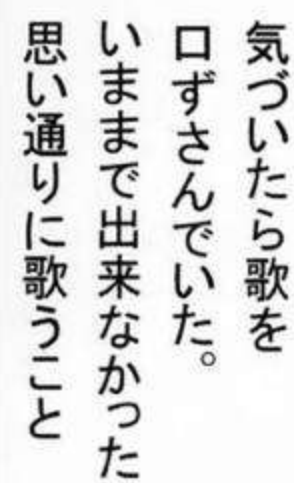 気づいたら歌を
口ずさんでいた。
いままで出来なかった
思い通りに歌うこと